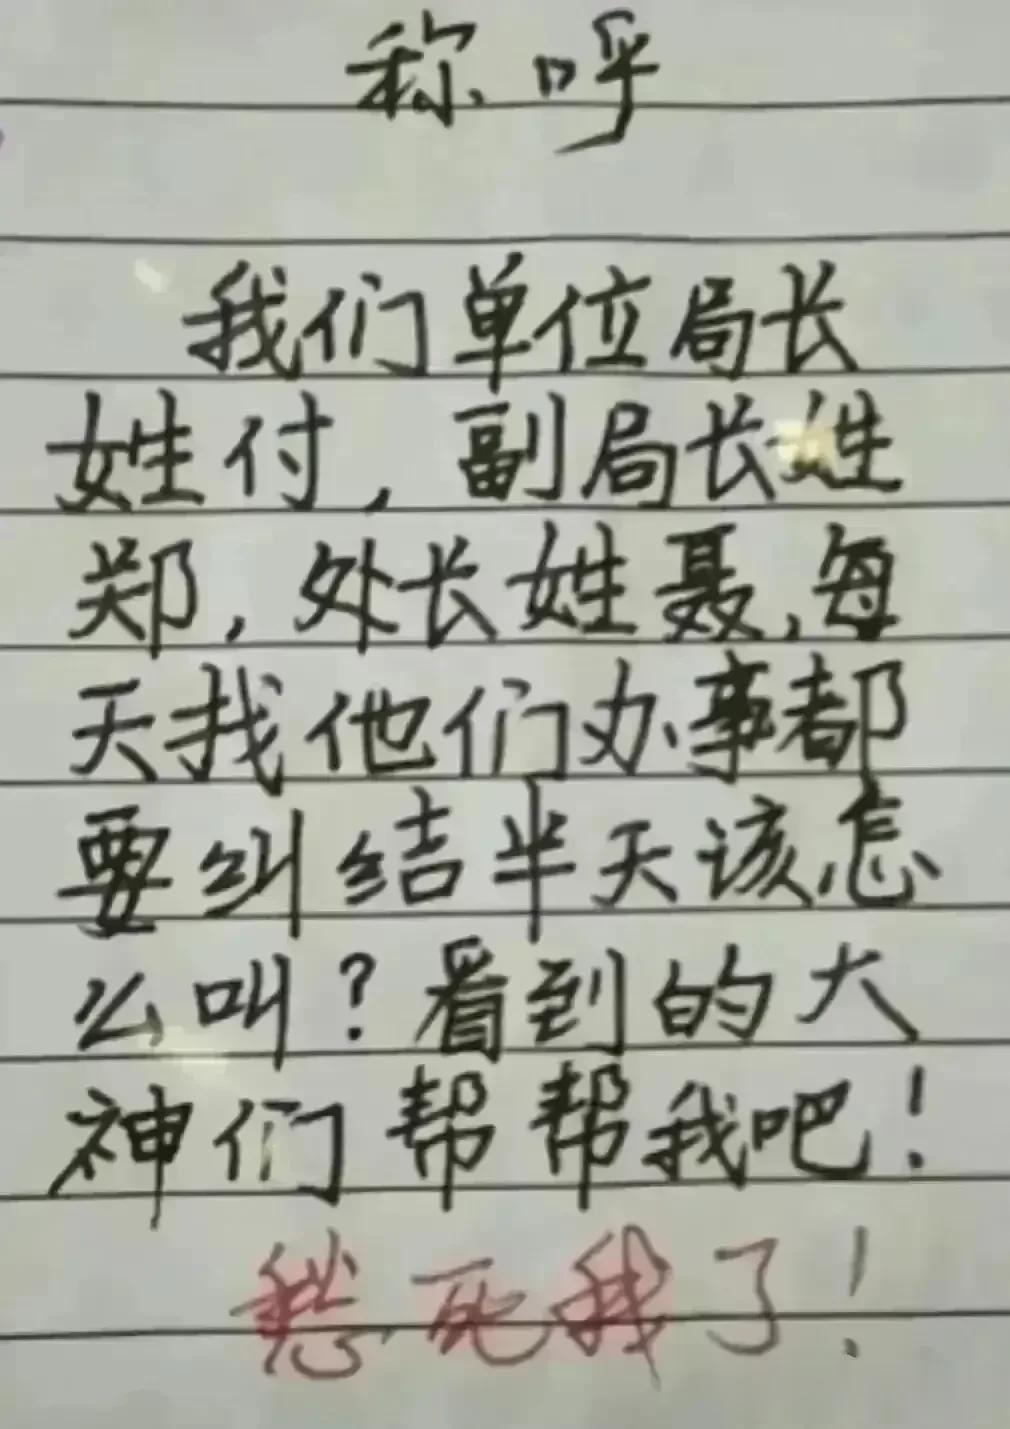 称呼
我们单位局长
姓付，副局长姓
郑，处长姓聂，每
天找他们办事都
要纠结半天该怎
么叫？看到的大
神们帮帮我吧！
愁死我了！